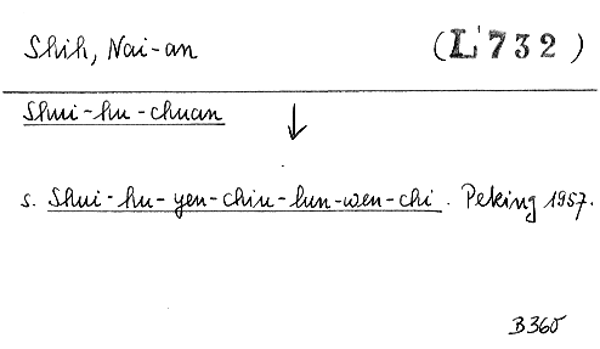 Shih, Nai-an (L'732)
Shui-hu-chuan ↓
s. Shui-hu-yen-chiu-lun-wen-chi. Peking 1957.
B360